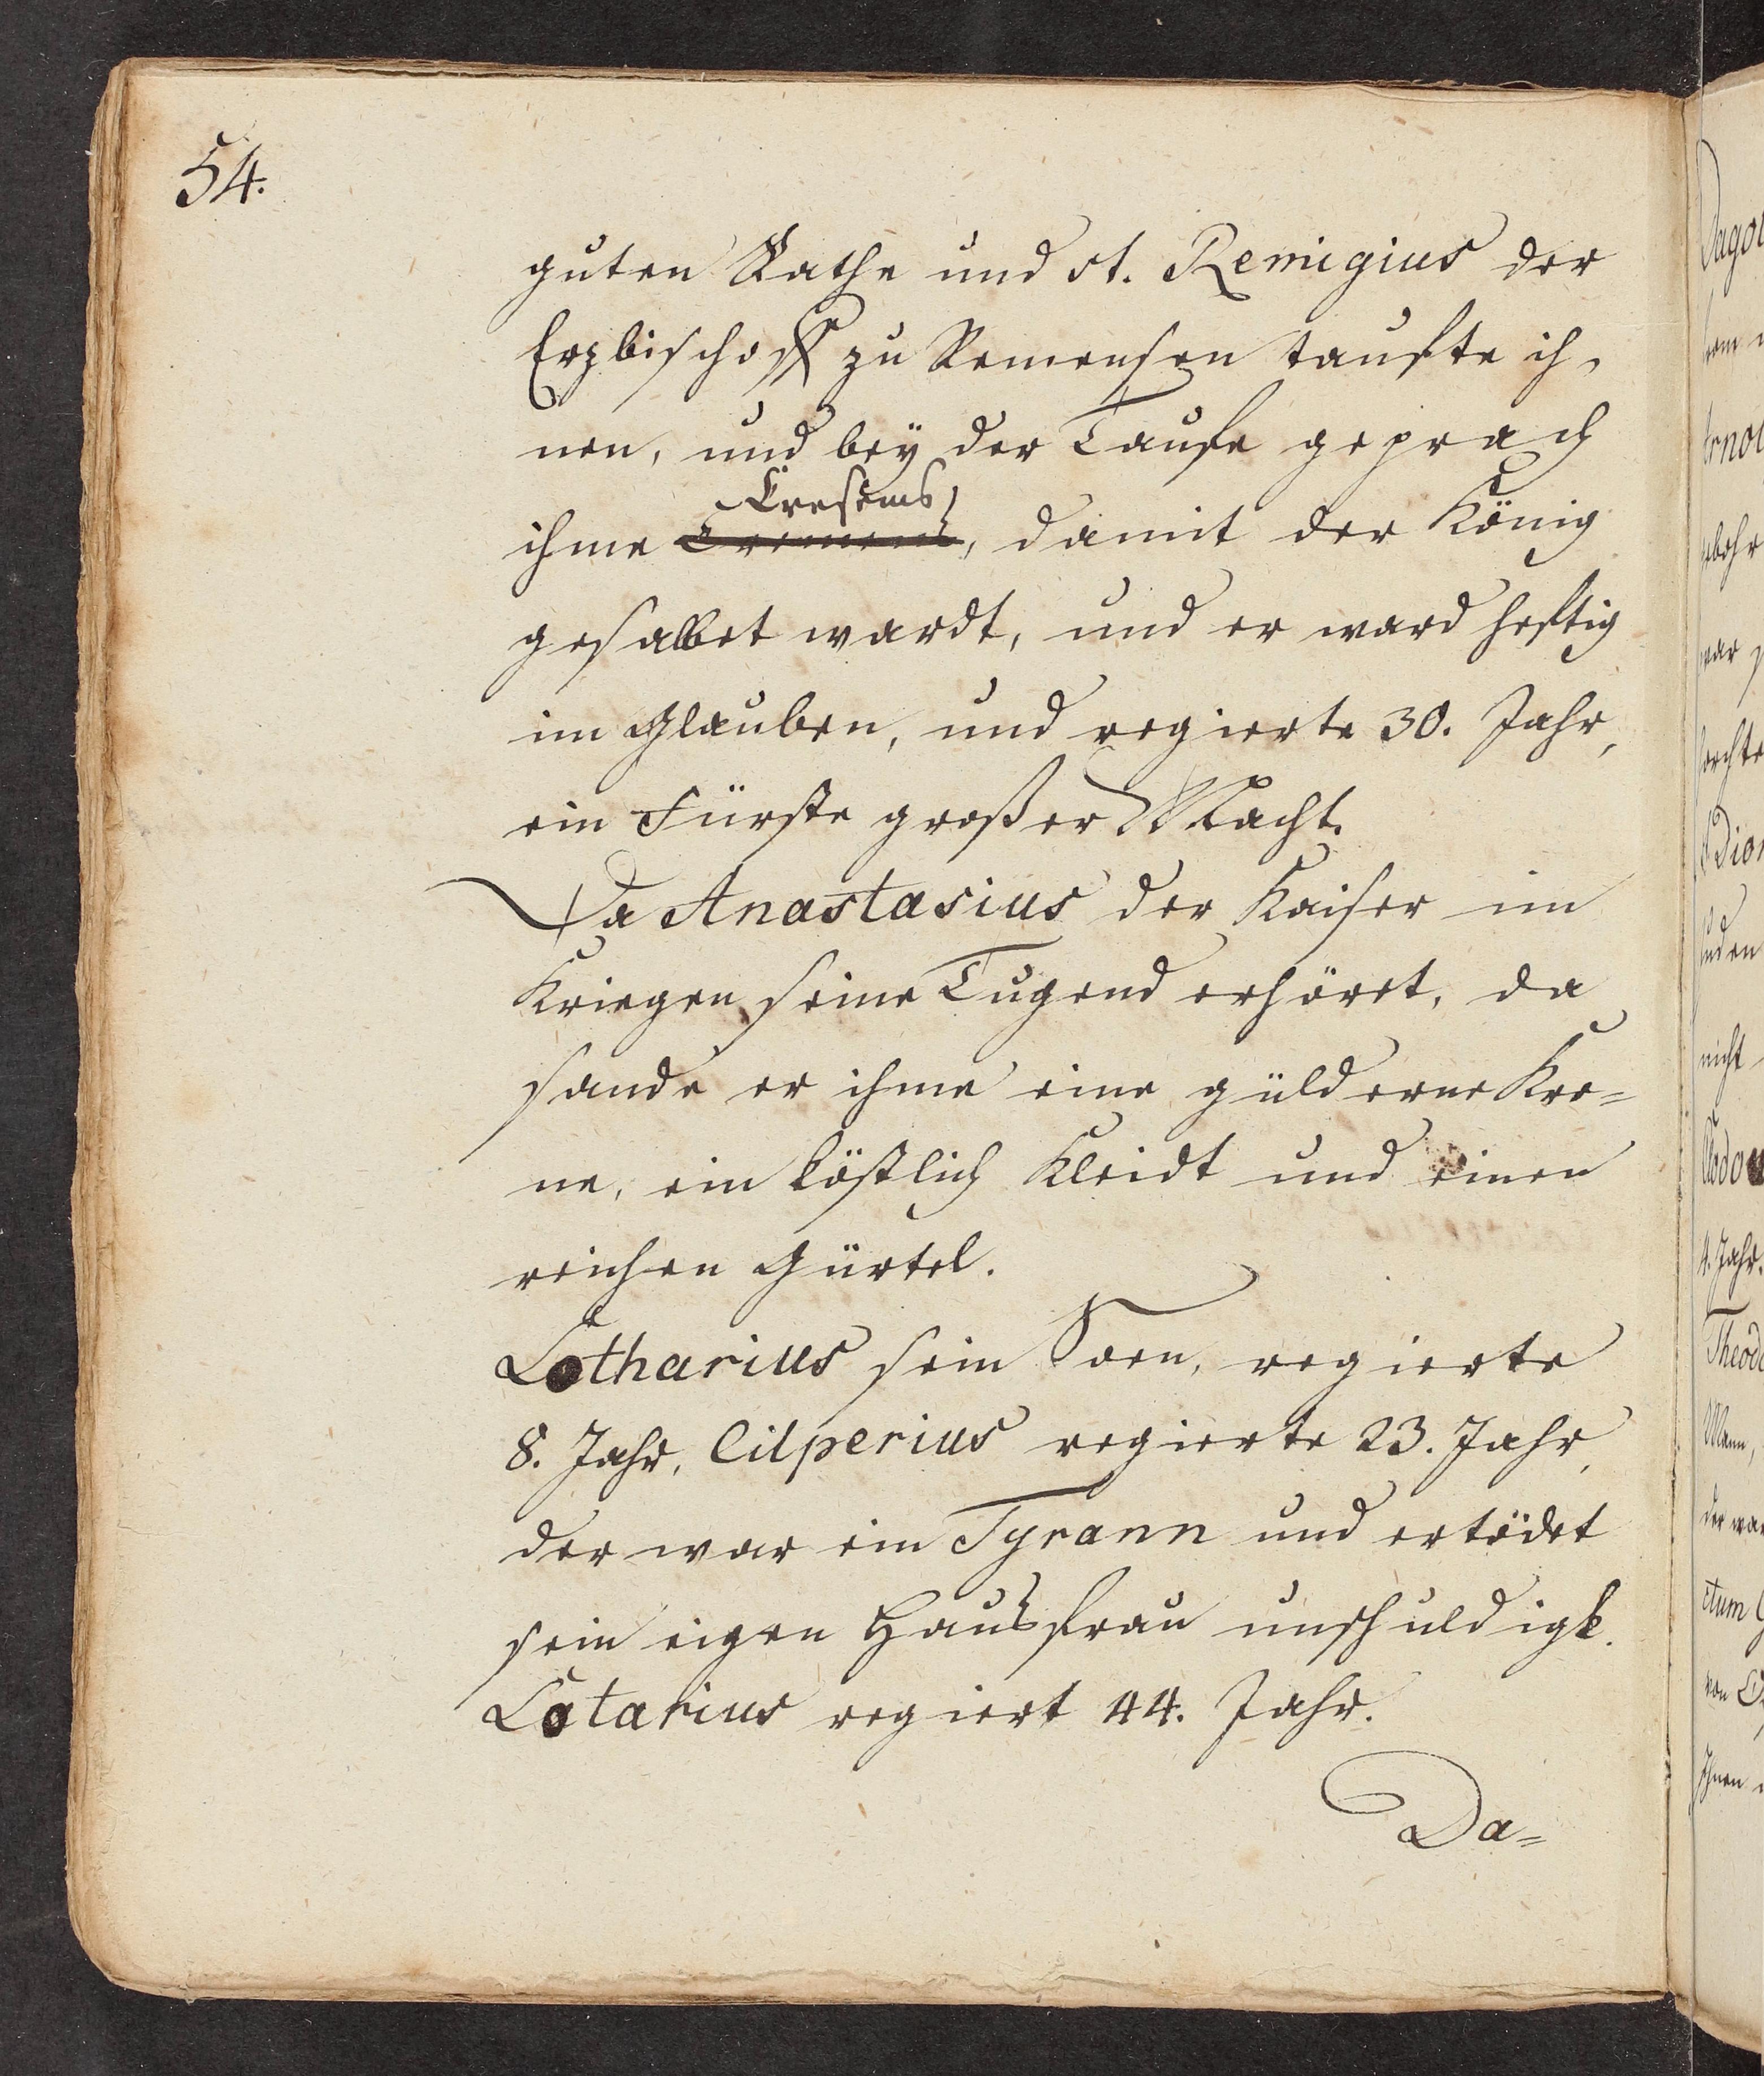 54.
guten Rathe und st. Remigius der
Erzbischoff zu Remensen taufte ih,
nen, und beÿ der Taufe geprach
Cresems
ihme, damit der König
gesalbet wardt, und er ward heftig
im Glauben, und regierte 30. Jahr,
ein Fürste großer Macht.
Da Anastasius der Kaiser im
Kriegen seine Tugend erhöret, da
sande er ihme eine gülderne Kro=
ne, ein köstlich Kleidt und einen
reichen Gürtel.
Lotharius sein Soen, regierte
8. Jahr, Cilperius regierte 23. Jahr,
der war ein Tyrann und ertödet
sein eigen Hausfrau unschuldigk.
Lotarius regiert 44. Jahr.
Da=